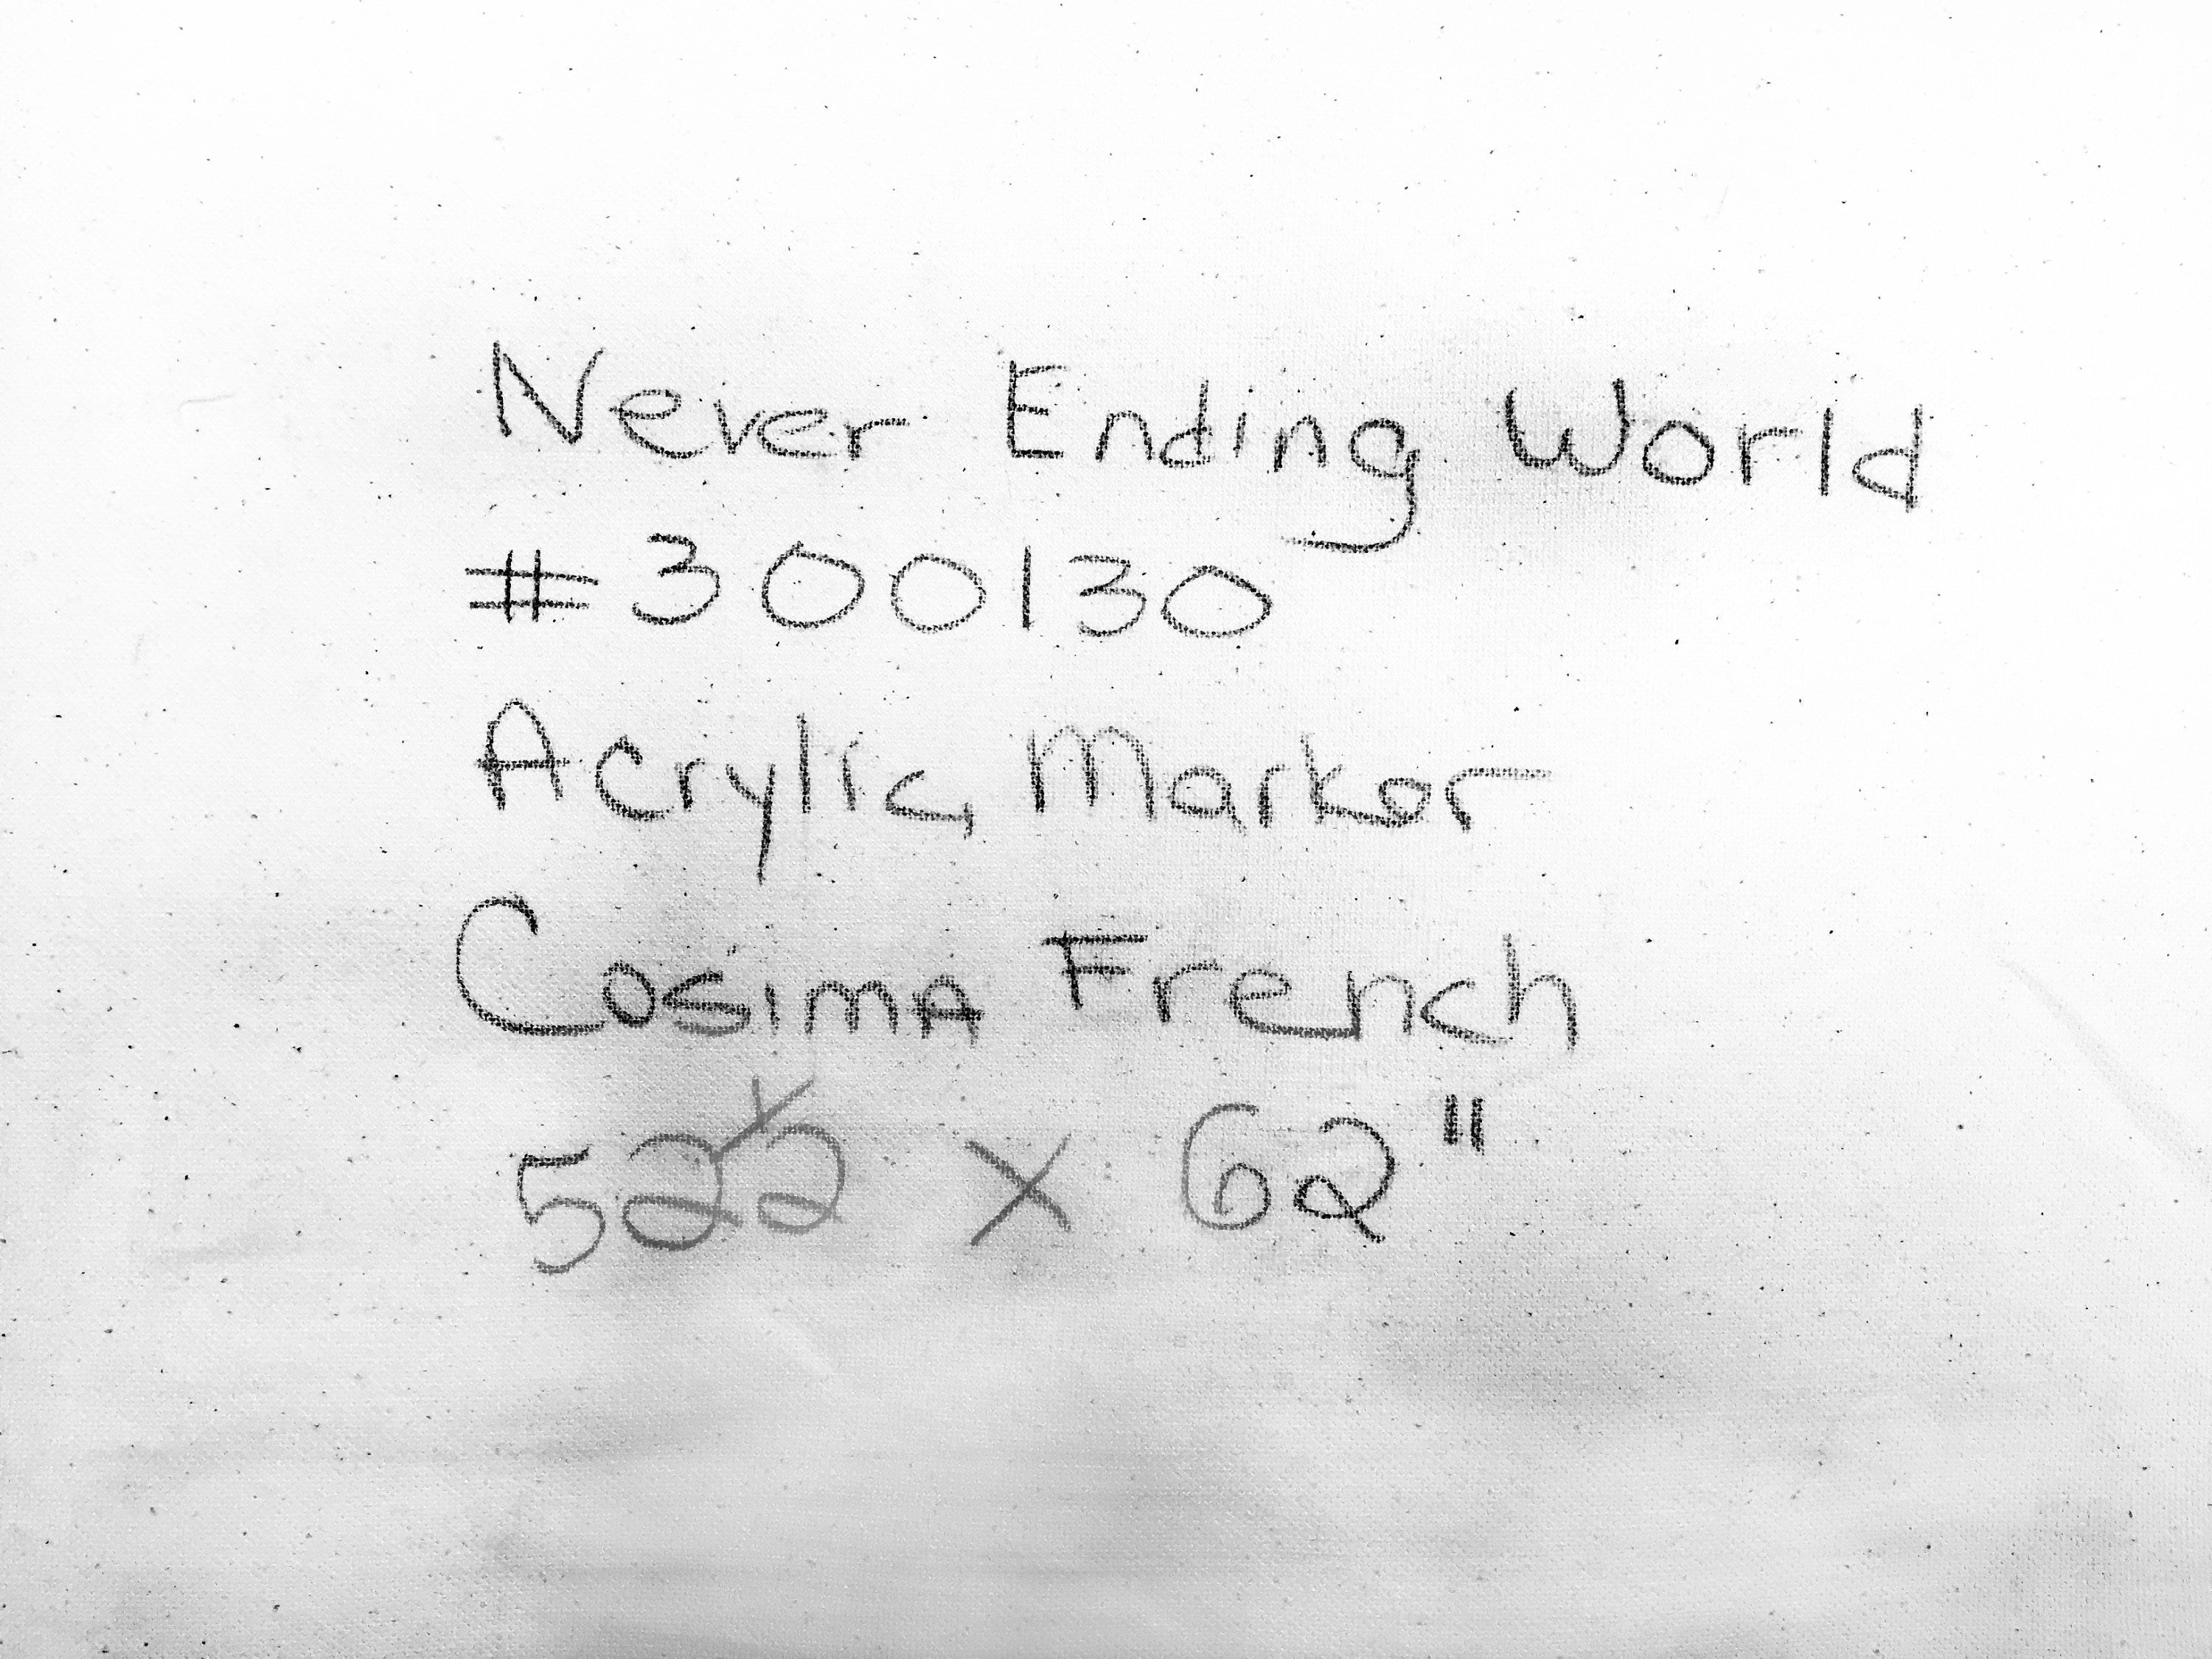 Never Ending World
#300130
Acrylic, Marker
Cosima French
52 1/2 x 62"